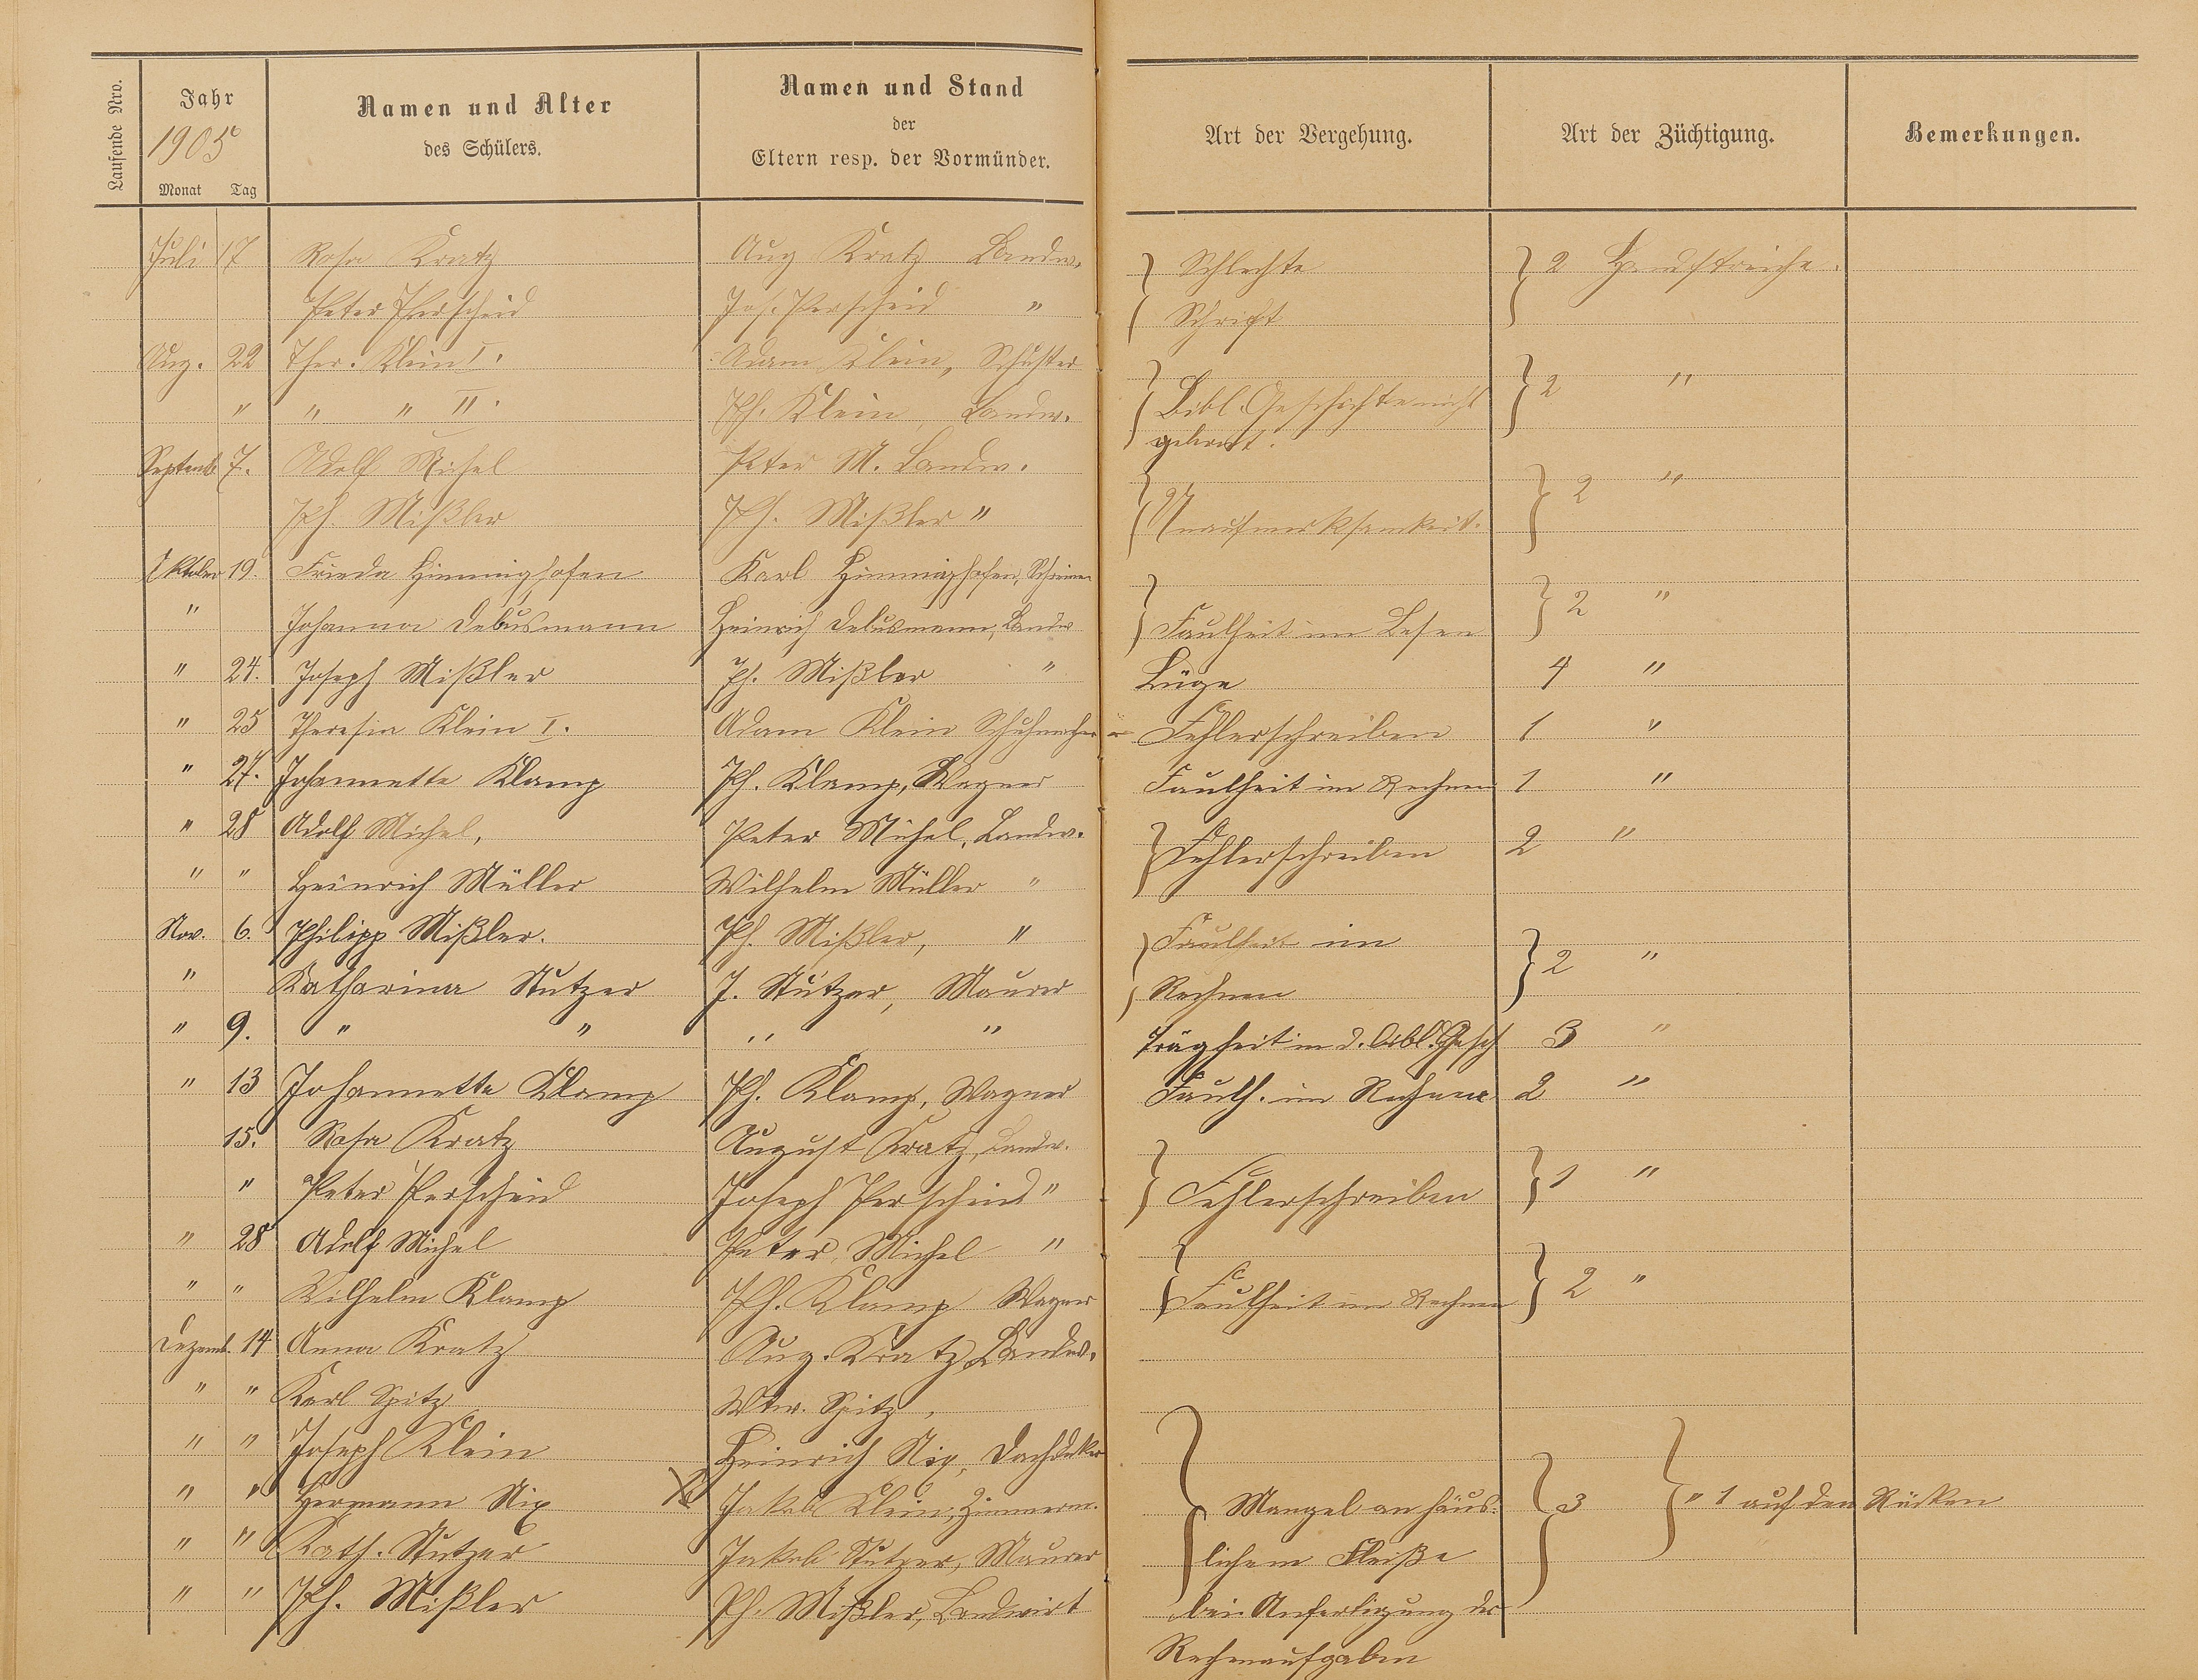 Laufende Nro.
Jahr
1905
Monat Tag
Namen und Alter
des Schülers.
Namen und Stand
der
Eltern resp. der Vormünder.
Art der Vergehung.
Art der Züchtigung.
Bemerkungen.
Juli 17 Rosa Kratz Aug Kratz Landw. } Schlechte } 2 Handstreiche.
Peter Perscheid Jos. Perscheid " Schrift
Aug. 22 Ther. Klein I. Adam Klein, Schuster } Bibl. Geschichte nicht } 2 "
" " " II. Ph. Klein, Landw. gelernt.
Septemb. 7. Adolf Michel Peter M. Landw. } 2 "
Ph. Mißler Ph. Mißler " Unaufmerksamkeit.
Oktober 19. Frieda Himmighofen Karl Himmighofen, Schreiner
" Johanna Debusmann Heinrich Debusmann, Landw } Faulheit im Lesen } 2 "
" 24. Joseph Mißler Ph. Mißler " Lüge 4 "
" 25 Theresia Klein I. Adam Klein Schuhmacher Fehlerschreiben 1 "
" 27. Johannette Klamp Ph. Klamp, Wagner Faulheit im Rechnen 1 "
" 28 Adolf Michel, Peter Michel, Landw. } Fehlerschreiben 2 "
" " Heinrich Müller Wilhelm Müller "
Nov. 6. Philipp Mißler. Ph. Mißler, " } Faulheit im } 2 "
" Katharina Stutzer J. Stutzer, Maurer Rechnen
" 9. " " " " Trägheit in d. bibl. Gesch 3 "
" 13 Johannette Klamp Ph. Klamp, Wagner Faulh. im Rechnen 2 "
15. Rosa Kratz August Kratz, Landw.
" Peter Perscheid Joseph Perscheid " } Fehlerschreiben } 1 "
" 28 Adolf Michel Peter Michel "
" " Wilhelm Klamp Ph. Klamp Wagner { Faulheit im Rechnen } 2 "
Dezemb. 14 Anna Kratz Aug. Kratz, Landw.
" " Karl Spitz Wtw. Spitz,
" " Joseph Klein Heinrich Nix, Dachdeker
" " Hermann Nix Jakob Klein, Zimmerm. } Mangel an häus- } 3 } " 1 auf den Rücken
" " Kath. Stutzer Jakob Stutzer, Maurer lichem Fleiße
" " Ph. Mißler Ph. Mißler, Landwirt bei Anfertigung der
Rechenaufgaben